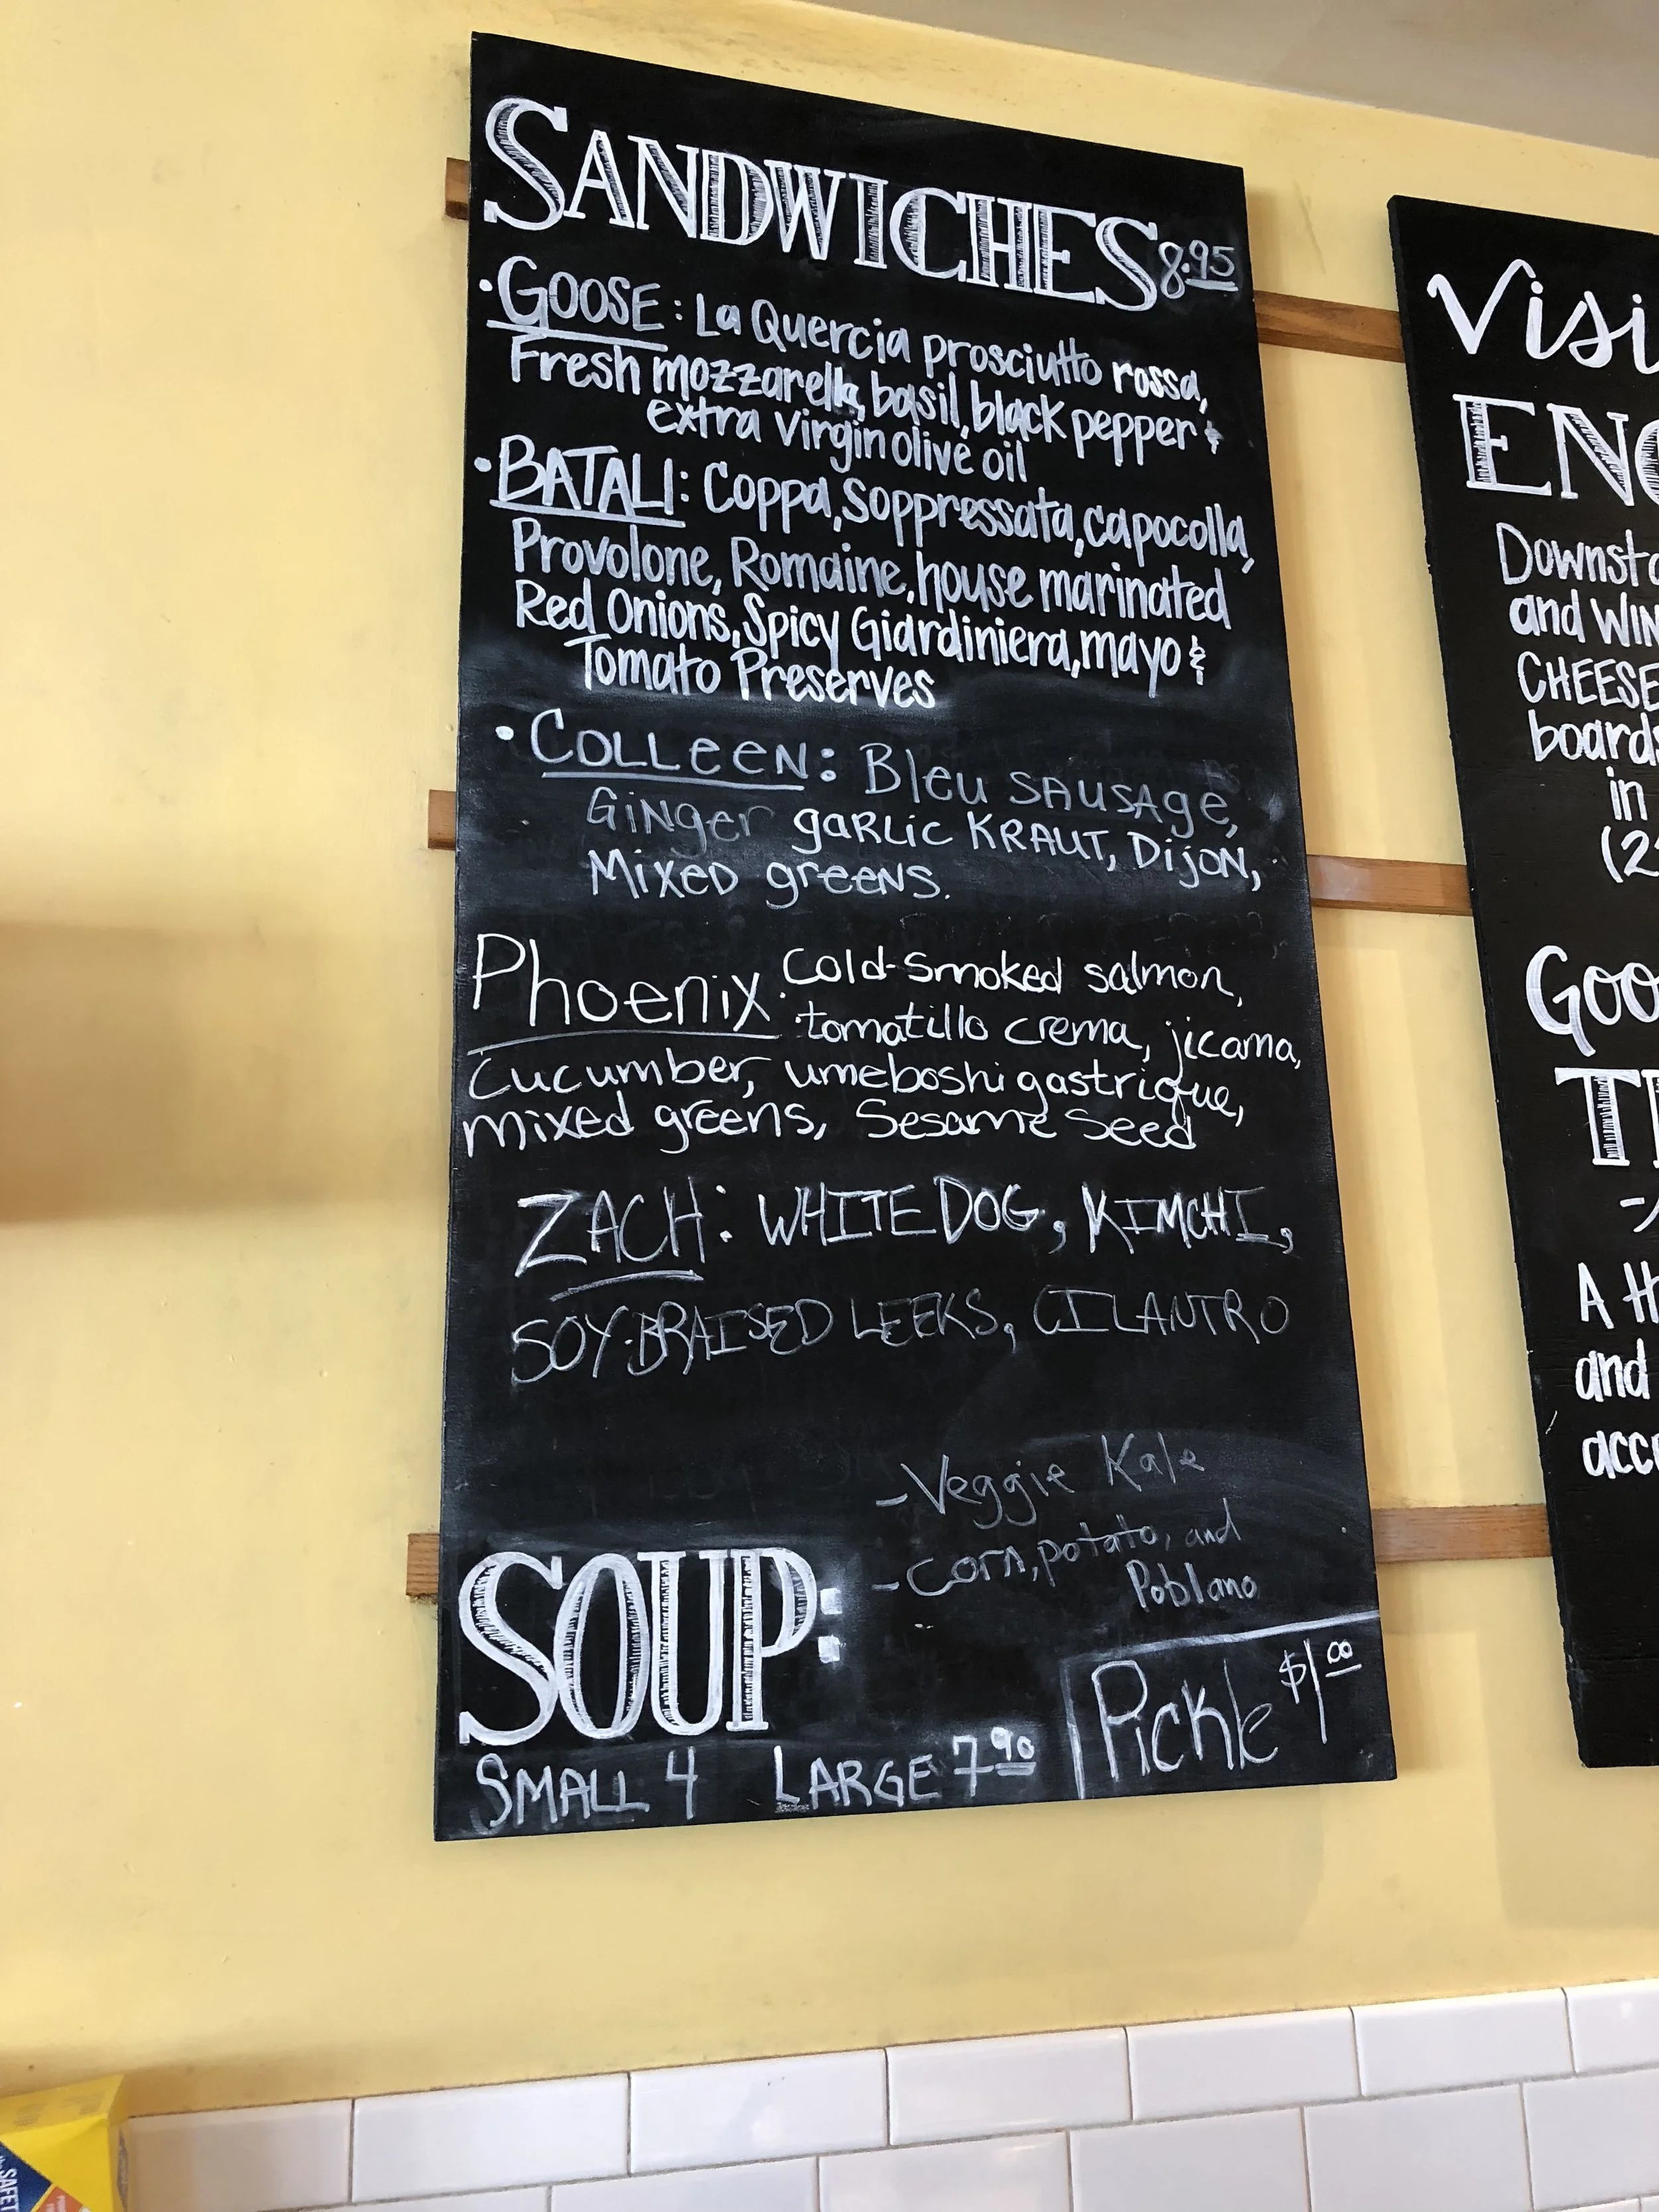 SANDWICHES 8.95
• GOOSE: La Quercia prosciutto rossa,
Fresh mozzarella, basil, black pepper &
extra virgin olive oil
• BATALI: Coppa, Soppressata, capocolla,
Provolone, Romaine, house marinated
Red Onions, Spicy Giardiniera, mayo &
Tomato Preserves
• COLLeeN: Bleu SAUSAge,
GiNger gaRLic KRAUT, DijoN,
MixeD greeNS.
Phoenix: Cold-Smoked salmon,
tomatillo crema, jicama,
Cucumber, umeboshi gastrique,
mixed greens, Sesame Seed
ZACH: WHITE DOG, KIMCHI,
SOY-BRAISED LEEKS, CILANTRO
- Veggie Kale
- Corn, potato, and
Poblano
SOUP:
SMALL 4 LARGE 7.90
Pickle $1.00
Visi
ENO
Downsta
and WIN
CHEESE
boards
in
(2
GOO
T
A H
and
acc
SAFET